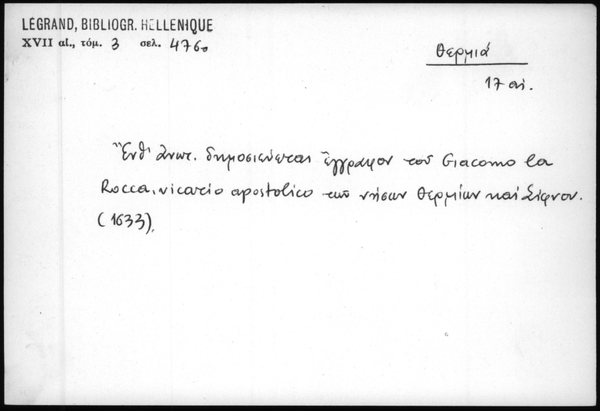 LEGRAND, BIBLIOGR. HELLENIQUE
XVII αἰ., τόμ. 3 σελ. 476
Θερμιά
17 αἰ.
Ἔνθ' ἀνωτ. δημοσιεύεται ἔγγραφον τοῦ Giacomo la
Rocca, vicario apostolico τῶν νήσων Θερμίων καὶ Σίφνου.
(1633).